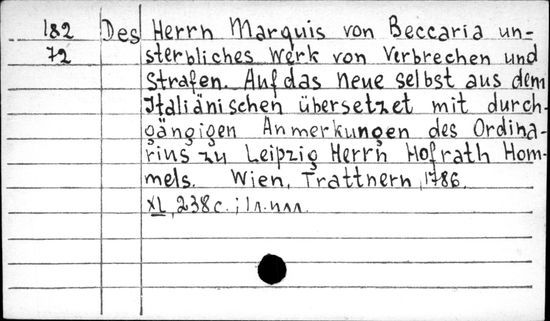 182 Des Herrn Marquis von Beccaria un-
72 sterbliches Werk von Verbrechen und
Strafen. Auf das neue selbst aus dem
Italiänischen übersetzet mit durch-
gängigen Anmerkungen des Ordina-
rius zu Leipzig Herrn Hofrath Hom-
mels. Wien, Trattnern, 1786.
XL, 238 с.; 1 л. илл.